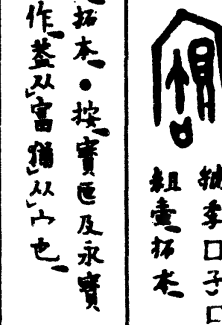 虢季□子□
組壺拓本
拓本●按寶匜及永寶
作从富猶从宀也